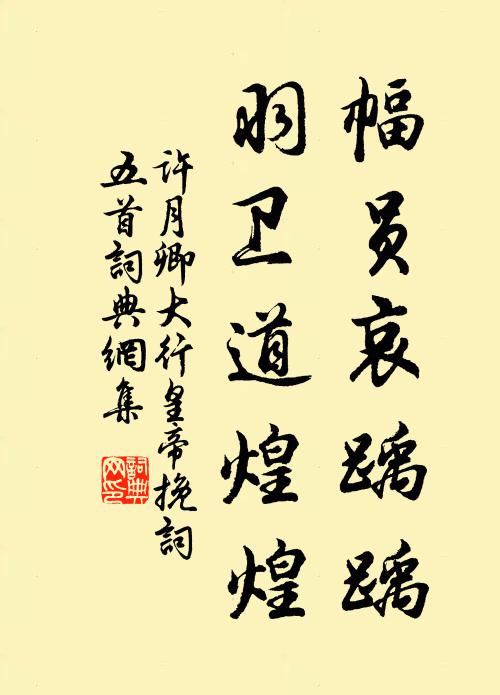 幅员哀踽踽
羽卫道煌煌
许月卿大行皇帝挽詞
五首詞典網集
詞典
网印